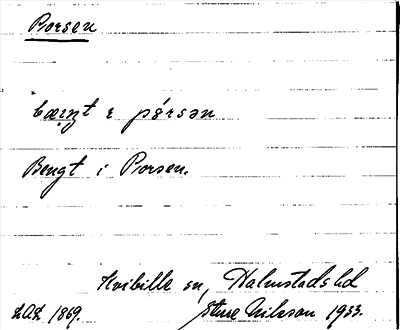 Porsen
bæiŋt ɛ pórsən
Bengt i Porsen.
Kvibille sn, Halmstads hd
LAL 1869. Sture Nilsson 1933.